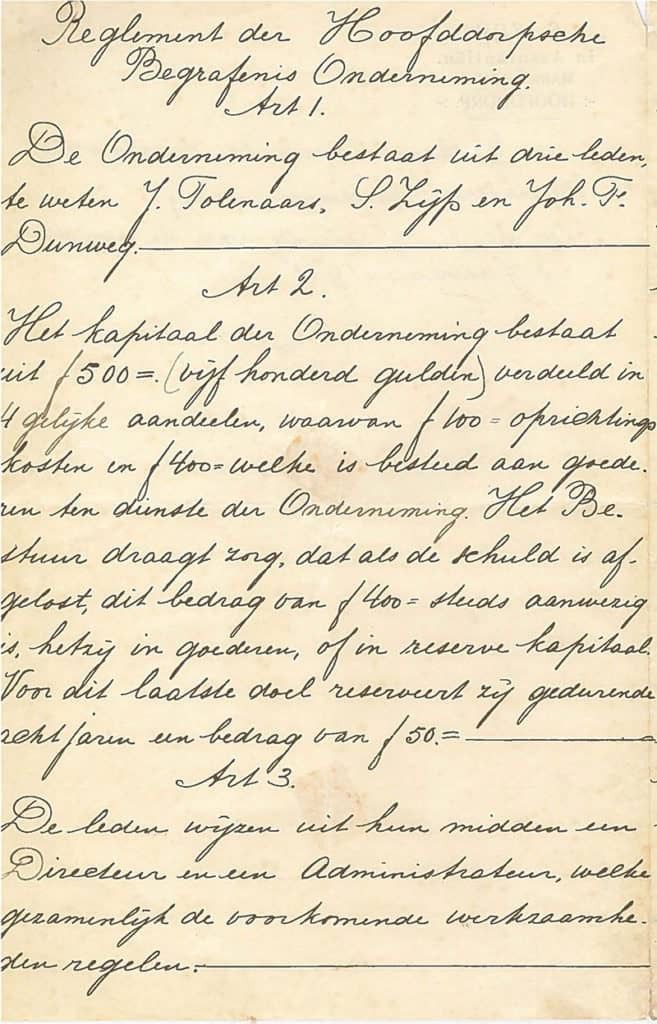 Reglement der Hoofddorpsche
Begrafenis Onderneming.
Art 1.
De Onderneming bestaat uit drie leden,
te weten J. Tolenaars, S. Zijp en Joh. Fs.
Dunweg.
Art 2.
Het kapitaal der Onderneming bestaat
uit f 500=. (vijf honderd gulden) verdeeld in
4 gelijke aandeelen, waarvan f 100= oprichtings
kosten en f 400= welke is besteed aan goede-
ren ten dienste der Onderneming. Het Be-
stuur draagt zorg, dat als de schuld is af-
gelost, dit bedrag van f 400= steeds aanwezig
is, hetzij in goederen, of in reserve kapitaal.
Voor dit laatste doel reserveert zij gedurende
acht jaren een bedrag van f 50.=
Art 3.
De leden wijzen uit hun midden een
Directeur en een Administrateur, welke
gezamenlijk de voorkomende werkzaamhe-
den regelen.